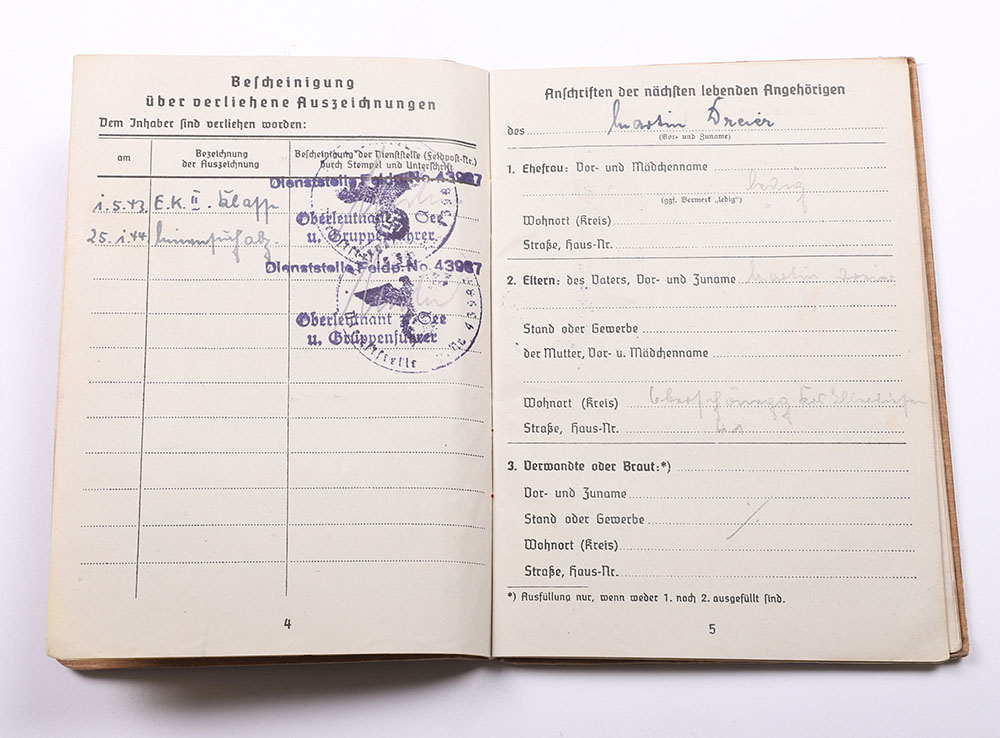 Bescheinigung
über verliehene Auszeichnungen
Dem Inhaber sind verliehen worden:
am
Bezeichnung
der Auszeichnung
Bescheinigung der Dienststelle (Feldpost-Nr.)
durch Stempel und Unterschrift
Dienststelle Feldp. No. 43987
1.5.43. E.K. II. Klasse
Oberleutnant z. See
u. Gruppenführer
25.1.44
Dienststelle Feldp. No. 43987
Oberleutnant z. See
u. Gruppenführer
Dienststelle
4
Anschriften der nächsten lebenden Angehörigen
des Martin Dreier
(Vor- und Zuname)
1. Ehefrau: Vor- und Mädchenname
ledig
(ggf. Vermerk „ledig")
Wohnort (Kreis)
Straße, Haus-Nr.
2. Eltern: des Vaters, Vor- und Zuname Martin Dreier
Stand oder Gewerbe
der Mutter, Vor- u. Mädchenname
Wohnort (Kreis) Oberschönegg
Straße, Haus-Nr.
3. Verwandte oder Braut:*)
Vor- und Zuname
Stand oder Gewerbe
Wohnort (Kreis)
Straße, Haus-Nr.
*) Ausfüllung nur, wenn weder 1. noch 2. ausgefüllt sind.
5